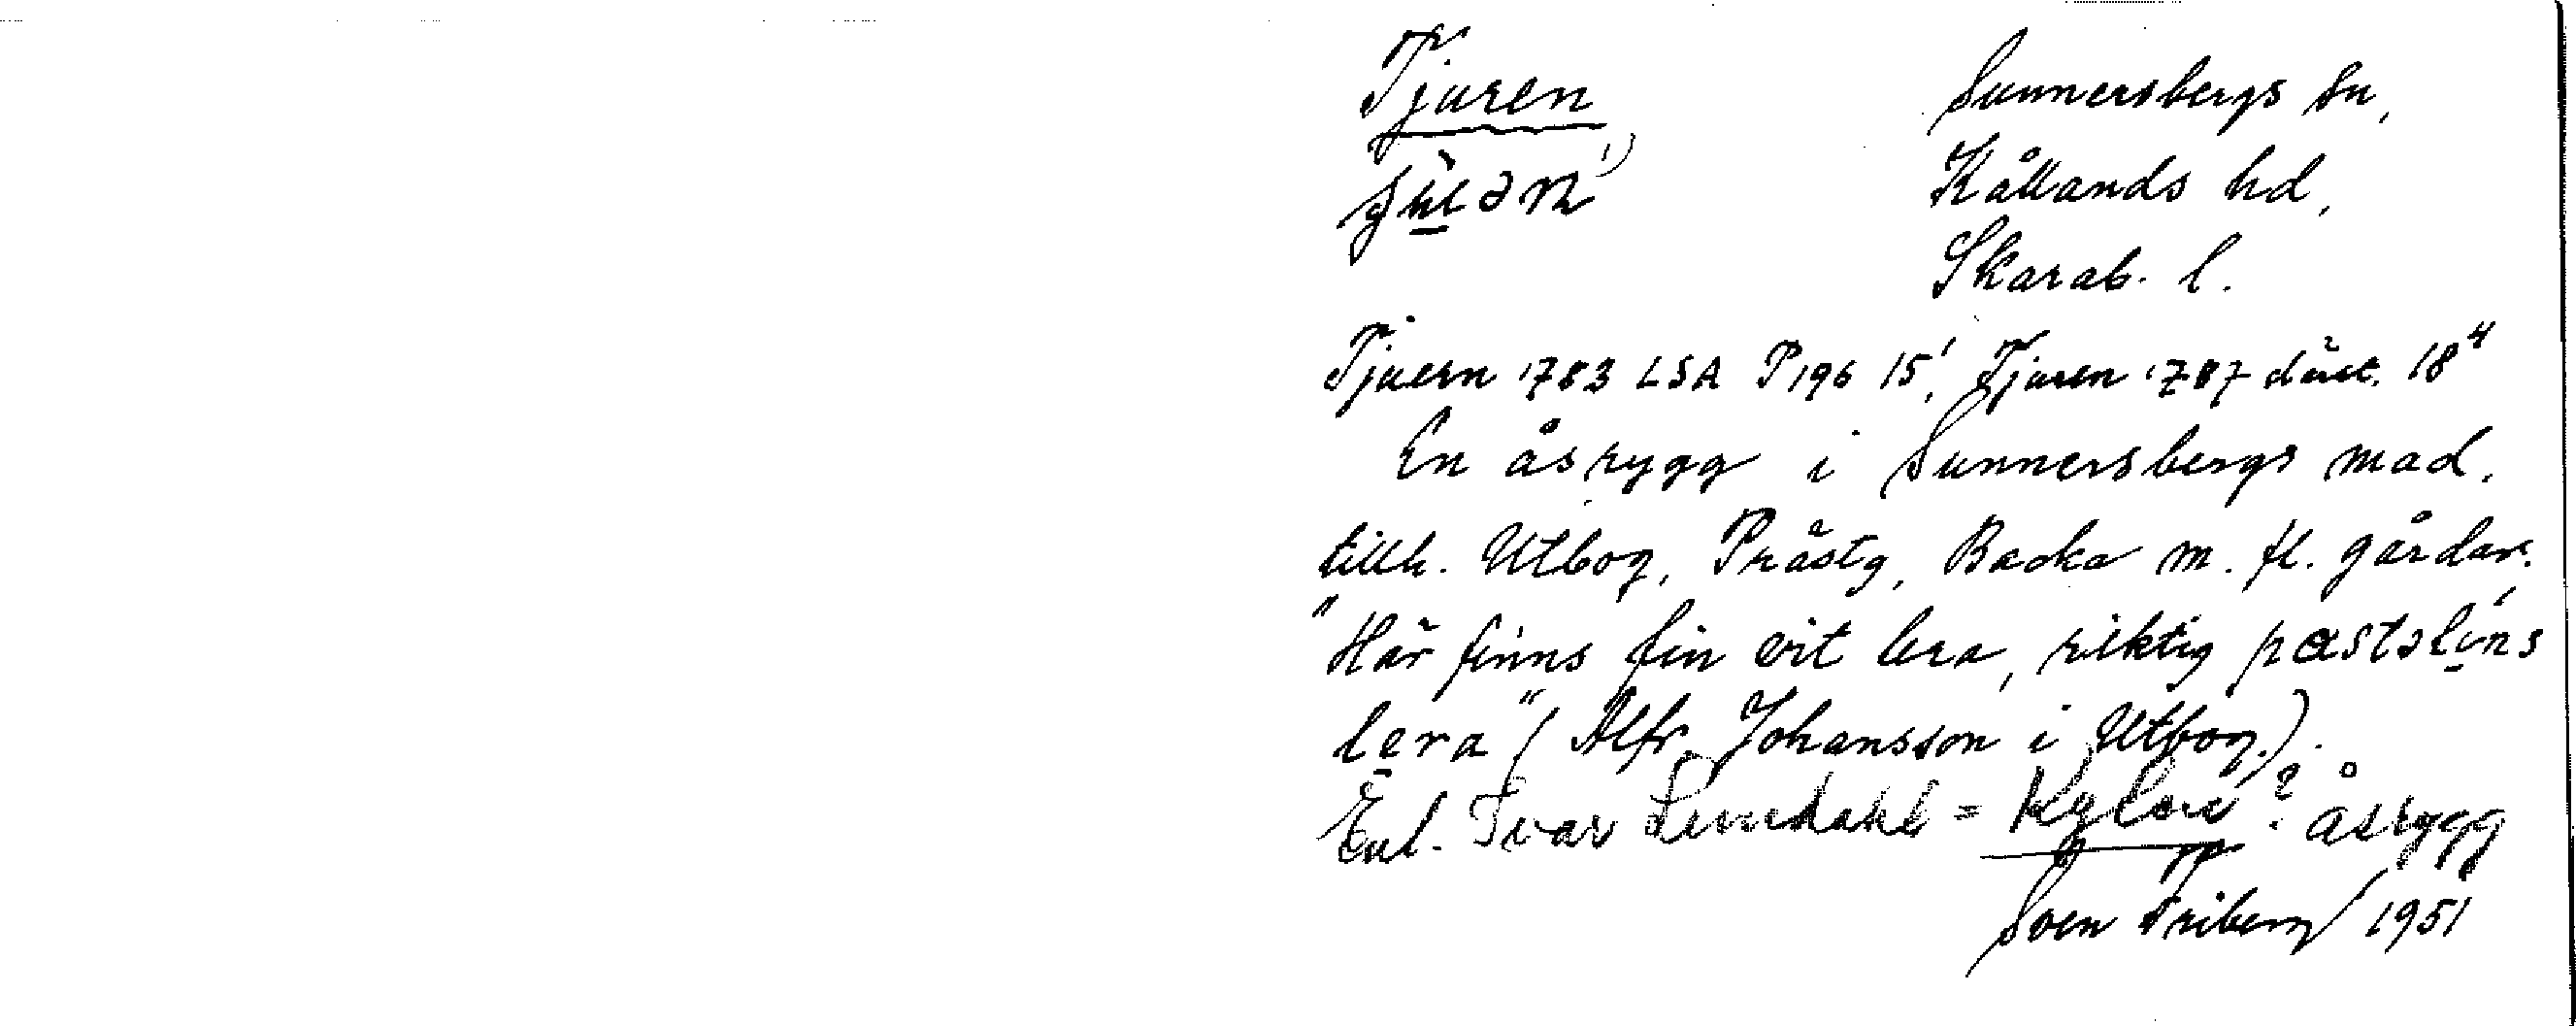 Tjuren
Sunnersbergs sn,
Kållands hd,
Skarab. l.
Tjuern 1783 LSA P196 15¹, Tjuren 1787 däst. 18⁴
En åsrygg i Sunnersbergs mad,
tillh. Utbog, Prästg, Backa m. fl. gårdar.
"Här finns fin vit lera, riktig pastslins
lera" (Alfr. Johansson i Utbog.).
Enl. Ivar = ? åsrygg
Sven Friberg 1951